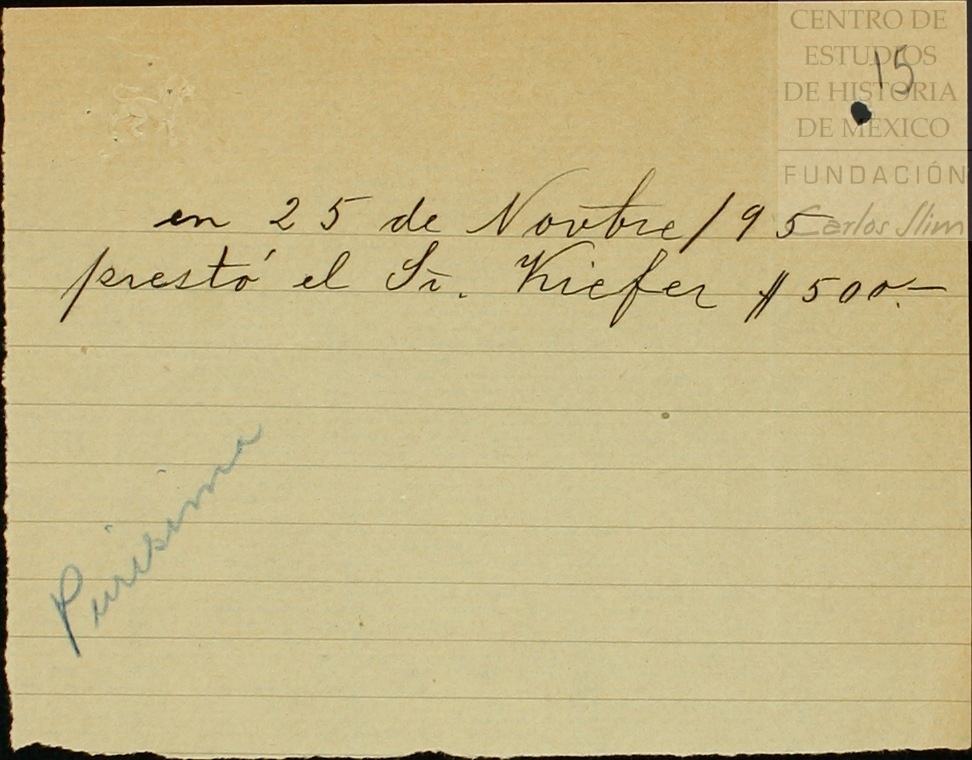 CENTRO DE
ESTUDIOS
DE HISTORIA
DE MÉXICO
FUNDACIÓN
Carlos Slim
15
en 25 de Novbre/95
prestó el Sr. Kiefer $500.—
Purisima